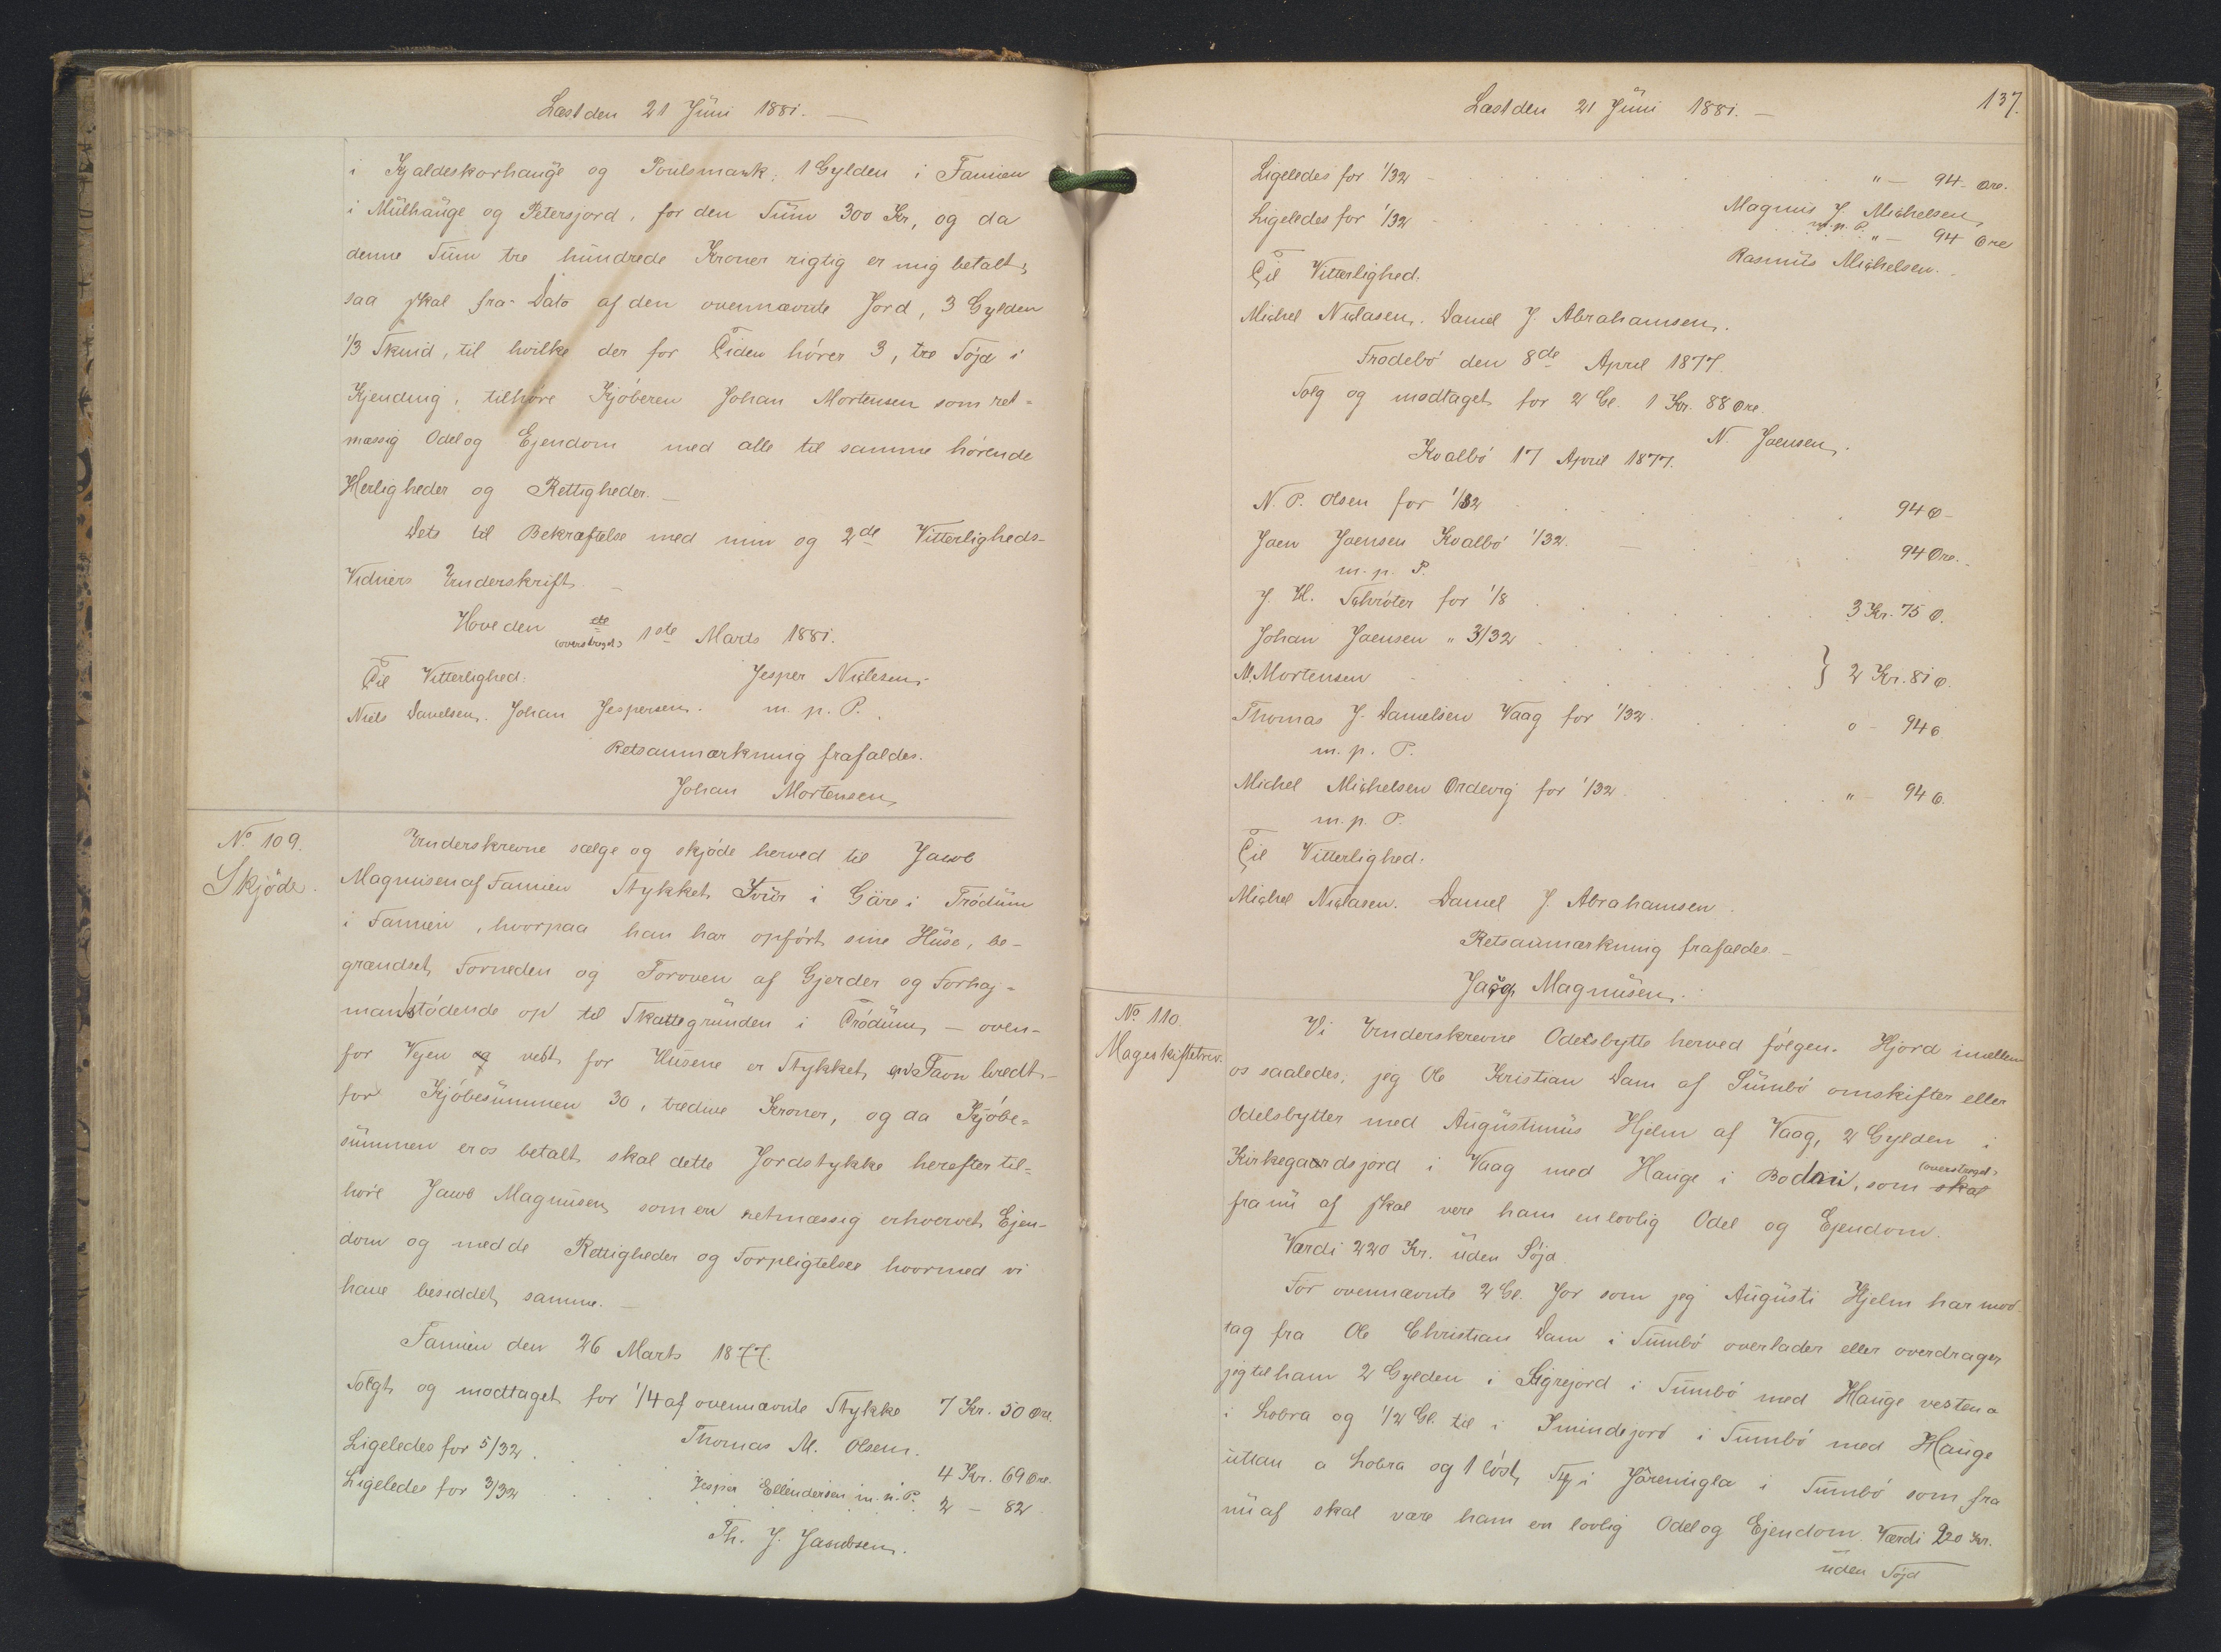 Læst den 21 Juni 1881. —
i Kjaldeskorhauge og Poulsmark; 1 Gylden i Famien
i Mulhauge og Petersjord, for den Sum 300 Kr., og da
denne Sum tre hundrede Kroner rigtig er mig betalt,
saa skal fra Dato af den ovennævnte Jord, 3 Gylden
1/3 Skind, til hvilke der for Tiden hører 3, tre Søjd i
Kjending, tilhøre Kjøberen Johan Mortensen som ret-
mæssig Odel og Ejendom med alle til samme hørende
Herligheder og Rettigheder. —
Dets til Bekræftelse med min og 2de Vitterligheds-
Vidners Underskrift. —
Hove den ste (overstreget) 1ste Marts 1881.
Til Vitterlighed: Jesper Niclesen,
Niels Danielsen. Johan Jespersen. m. p. P.
Retsanmærkning frafaldes.
Johan Mortensen
No 109.
Skjøde.
Underskrevne sælge og skjøde herved til Jacob
Magnusen af Famien Stykket i Gäre i Trødum
i Famien, hvorpaa han har opført sine Huse, be-
grændset Forneden og Foroven af Gjerder og Forhøj-
man stødende op til Skattegrunden i Trødum, — oven-
for Vejen og vest for Husene er Stykket en Favn bredt —
for Kjøbesummen 30, tredive Kroner, og da Kjøbe-
summen er os betalt skal dette Jordstykke herefter til-
høre Jacob Magnusen som en retmæssig erhvervet Ejen-
dom og med de Rettigheder og Forpligtelser hvormed vi
have besiddet samme. —
Famien den 26 Marts 1877.
Solgt og modtaget for 1/4 af ovennævnte Stykke 7 Kr. 50 Øre.
Thomas M. Olsen.
Ligeledes for 5/32 . . . 4 Kr. 69 Øre.
Jesper Ellendersen m. n. P.
Ligeledes for 3/32 . . . 2 — 82
Th. J. Jacobsen.
Læst den 21 Juni 1881. —
137.
Ligeledes for 1/32 — . . . " — 94 Øre.
Magnus J. Michelsen
m. p. P.
Ligeledes for 1/32 — . . . " — 94 Øre
Rasmus Michelsen.
Til Vitterlighed:
Michel Niclasen. Daniel J. Abrahamsen.
Frodebø den 8de April 1877.
Solg og modtaget for 2 Gl. 1 Kr. 88 Øre.
N. Joensen.
Kvalbø 17 April 1877.
N. P. Olsen for 1/32 . . . 94 Ø —
Joen Joensen Kvalbø 1/32. — . . . 94 Øre.
m. p. P.
J. H. Schrøter for 1/8 . . . 3 Kr. 75 Ø.
Johan Joensen " 3/32
M. Mortensen . . . } 2 Kr. 81 Ø.
Thomas J. Danielsen Vaag for 1/32 . . . 0 — 94 Ø
m. p. P.
Michel Michelsen Ordevig for 1/32 . . . " — 94 Ø.
m. p. P.
Til Vitterlighed:
Michel Niclasen. Daniel J. Abrahamsen.
Retsanmærkning frafaldes. —
Magnusen.
No 110.
Mageskiftebrev.
Vi Underskrevne Odelsbytte herved følgen. Hjord imellem
os saaledes; jeg Ole Kristian Dam af Sumbø omskifter eller
Odelsbytter med Augustinus Hjelm af Vaag, 2 Gylden i
Kirkegaardsjord i Vaag med Hauge i Bodni, som skal (overstreget)
fra nu af skal vere ham en lovlig Odel og Ejendom.
Værdi 220 Kr. uden Søjd.
For ovennævnte 2 Gl. Jor som jeg Augusti Hjelm har mod-
tag fra Ole Christian Dam i Sumbø overlader eller overdrager
jeg til ham 2 Gylden i Sigrejord i Sumbø med Hauge vesten a
i Lobra og 1/2 Gl. til i Smindejord i Sumbø med Hauge
uttan a Lobra og 1 løst i i Sumbø som fra
nu af skal være ham en lovlig Odel og Ejendom. Værdi 220 Kr.
uden Søjd